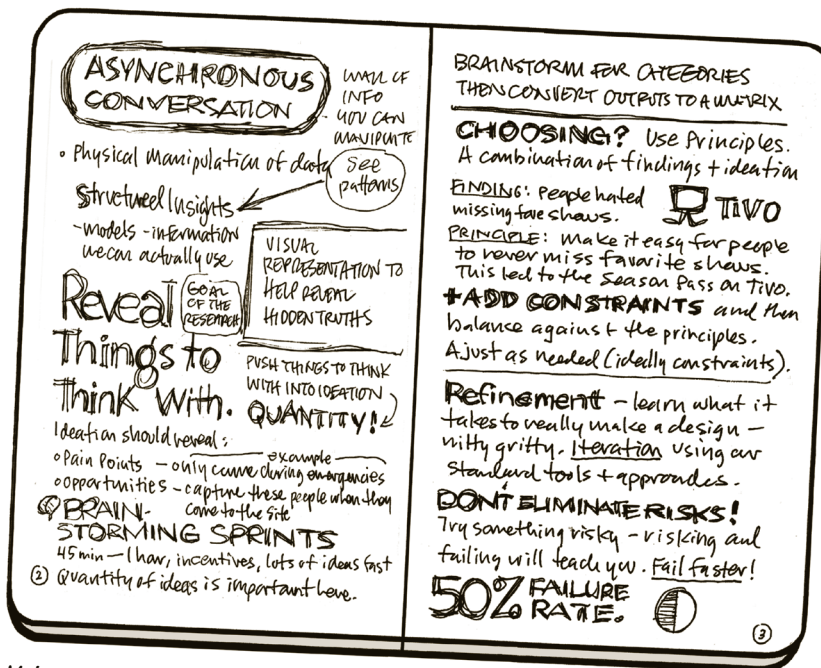 ASYNCHRONOUS
CONVERSATION
WALL OF
INFO
YOU CAN
MANIPULATE
• Physical Manipulation of data
See
patterns
Structured Insights
- models - information
we can actually use
VISUAL
REPRESENTATION TO
HELP REVEAL
HIDDEN TRUTHS
Reveal
GOAL
OF THE
RESEARCH
Things to
Think With.
PUSH THINGS TO THINK
WITH INTO IDEATION
QUANTITY!
Ideation should reveal:
example
• Pain Points - only came during emergencies
• Opportunities - capture these people when they
come to the site
BRAIN-
STORMING SPRINTS
45 min - 1 hour, incentives, lots of ideas fast
Quantity of ideas is important here.
2
BRAINSTORM FOR CATEGORIES
THEN CONVERT OUTPUTS TO A MATRIX
CHOOSING? Use Principles.
A combination of findings + ideation
FINDING: People hated
missing fave shows.
TIVO
PRINCIPLE: Make it easy for people
to never miss favorite shows.
This led to the Season Pass on Tivo.
+ADD CONSTRAINTS and then
balance against the principles.
Ajust as needed (ideally constraints).
Refinement - learn what it
takes to really make a design -
nitty gritty. Iteration using our
standard tools + approaches.
DON'T ELIMINATE RISKS!
Try something risky - risking and
failing will teach you. Fail faster!
50% FAILURE
RATE.
3